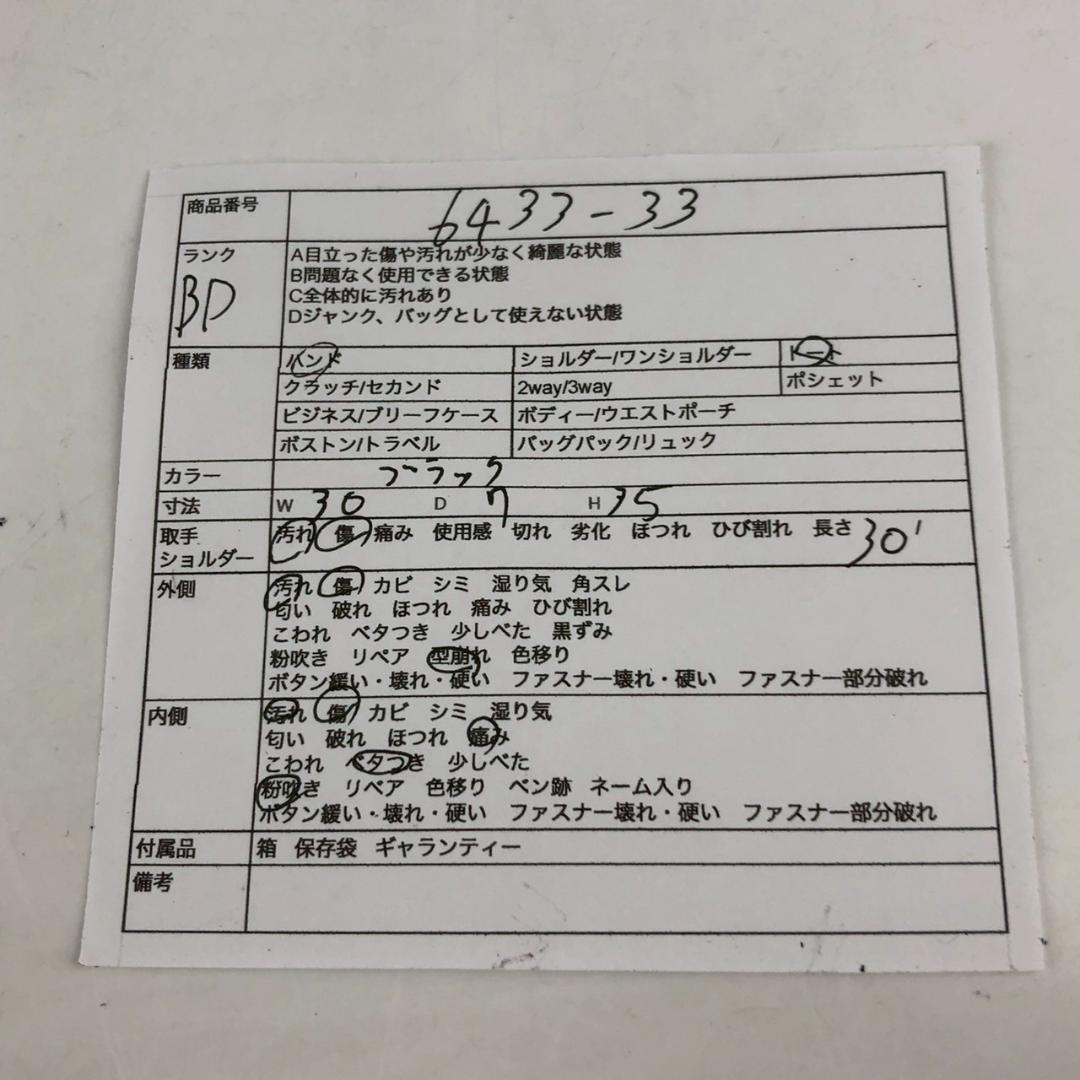 商品番号 6433-33
ランク BD
A目立った傷や汚れが少なく綺麗な状態
B問題なく使用できる状態
C全体的に汚れあり
Dジャンク、バッグとして使えない状態
種類 ハンド ショルダー/ワンショルダー トート
クラッチ/セカンド 2way/3way ポシェット
ビジネス/ブリーフケース ボディー/ウエストポーチ
ボストン/トラベル バッグパック/リュック
カラー ブラック
寸法 W 30 D 7 H 25
取手 汚れ 傷 痛み 使用感 切れ 劣化 ほつれ ひび割れ 長さ 30
ショルダー
外側 汚れ 傷 カビ シミ 湿り気 角スレ
匂い 破れ ほつれ 痛み ひび割れ
こわれ ベタつき 少しべた 黒ずみ
粉吹き リペア 型崩れ 色移り
ボタン緩い・壊れ・硬い ファスナー壊れ・硬い ファスナー部分破れ
内側 汚れ 傷 カビ シミ 湿り気
匂い 破れ ほつれ 痛み
こわれ ベタつき 少しべた
粉吹き リペア 色移り ペン跡 ネーム入り
ボタン緩い・壊れ・硬い ファスナー壊れ・硬い ファスナー部分破れ
付属品 箱 保存袋 ギャランティー
備考